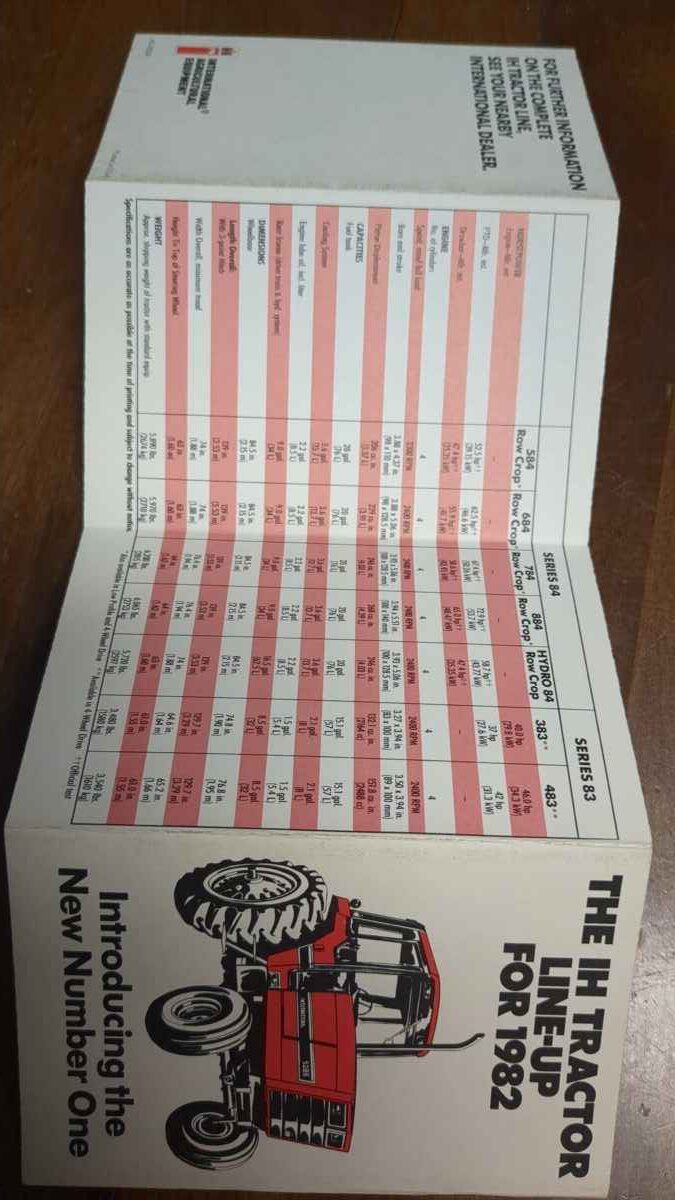 FOR FURTHER INFORMATION
ON THE COMPLETE
IH TRACTOR LINE,
SEE YOUR NEARBY
INTERNATIONAL DEALER.
INTERNATIONAL®
AGRICULTURAL
EQUIPMENT
SERIES 84 SERIES 83
584 684 784 884 HYDRO 84 383** 483**
Row Crop* Row Crop* Row Crop* Row Crop* Row Crop
HORSEPOWER
Engine—Mfr. est. – – – – – 40.0 hp 46.0 hp
(29.8 kW) (34.3 kW)
PTO—Mfr. est. 52.5 hp†† 62.5 hp†† 67.4 hp†† 72.9 hp†† 58.7 hp†† 37 hp 42 hp
(46.6 kW) (43.77 kW) (27.6 kW) (31.3 kW)
Drawbar—Mfr. est.
ENGINE
No. of cylinders 4 4 4 4 4
Speed, rated full load 2300 RPM 2400 RPM 2400 RPM 2400 RPM 2400 RPM 2400 RPM 2400 RPM
Bore and stroke 3.88 x 4.37 in. 3.88 x 5.06 in. 3.94 x 5.51 in. 3.93 x 5.06 in. 3.27 x 3.94 in. 3.50 x 3.94 in.
(98 x 110 mm) (98 x 128.5 mm) (100 x 140 mm) (100 x 128.5 mm) (83 x 100 mm) (89 x 100 mm)
Piston Displacement 206 cu. in. 239 cu. in. 246 cu. in. 268 cu. in. 246 cu. in. 132.1 cu. in. 151.8 cu. in.
CAPACITIES
Fuel tank 20 gal 20 gal 20 gal 20 gal 20 gal 15.1 gal. 15.1 gal.
(76 L) (76 L) (76 L) (76 L) (76 L) (57 L) (57 L)
Cooling System 3.6 gal 3.6 gal 3.6 gal 3.6 gal 3.6 gal 2.1 gal. 2.1 gal.
(8 L) (8 L)
Engine lube oil, incl. filter 2.2 gal 2.2 gal 2.2 gal 2.2 gal 2.2 gal 1.5 gal. 1.5 gal.
(8.5 L) (8.5 L) (8.5 L) (8.5 L) (8.5 L) (5.4 L) (5.4 L)
Rear frame (drive train & hyd. system) 9.0 gal 9.0 gal 9.0 gal 9.0 gal 16.5 gal 8.5 gal 8.5 gal
(34 L) (34 L) (34 L) (34 L) (62.5 L) (32 L) (32 L)
DIMENSIONS
Wheelbase 84.5 in. 84.5 in. 84.5 in. 84.5 in. 84.5 in. 74.8 in. 76.8 in.
(2.15 m) (2.15 m) (2.15 m) (2.15 m) (2.15 m) (1.90 m) (1.95 m)
Length Overall: 139 in. 139 in. 139 in. 139 in. 139 in. 129.7 in. 129.7 in.
With 3-point Hitch (3.53 m) (3.53 m) (3.53 m) (3.53 m) (3.53 m) (3.29 m) (3.29 m)
Width Overall, minimum tread 74 in. 74 in. 76.4 in. 76.4 in. 74 in. 64.6 in. 65.2 in.
(1.88 m) (1.88 m) (1.94 m) (1.94 m) (1.88 m) (1.64 m) (1.66 m)
Height To Top of Steering Wheel 63 in. 63 in. 64 in. 64 in. 63 in. 61.0 in. 61.0 in.
(1.60 m) (1.60 m) (1.55 m) (1.55 m)
WEIGHT
Approx. shipping weight of tractor with standard equip. 5,890 lbs. 5,970 lbs. 5,720 lbs. 3,480 lbs. 3,540 lbs.
(2674 kg) (2710 kg) (1580 kg) (1610 kg)
*Also available in Low Profile and 4-Wheel Drive **Available in 4-Wheel Drive ††Official test
Specifications are as accurate as possible at the time of printing and subject to change without notice.
THE IH TRACTOR
LINE-UP
FOR 1982
INTERNATIONAL
Introducing the
New Number One